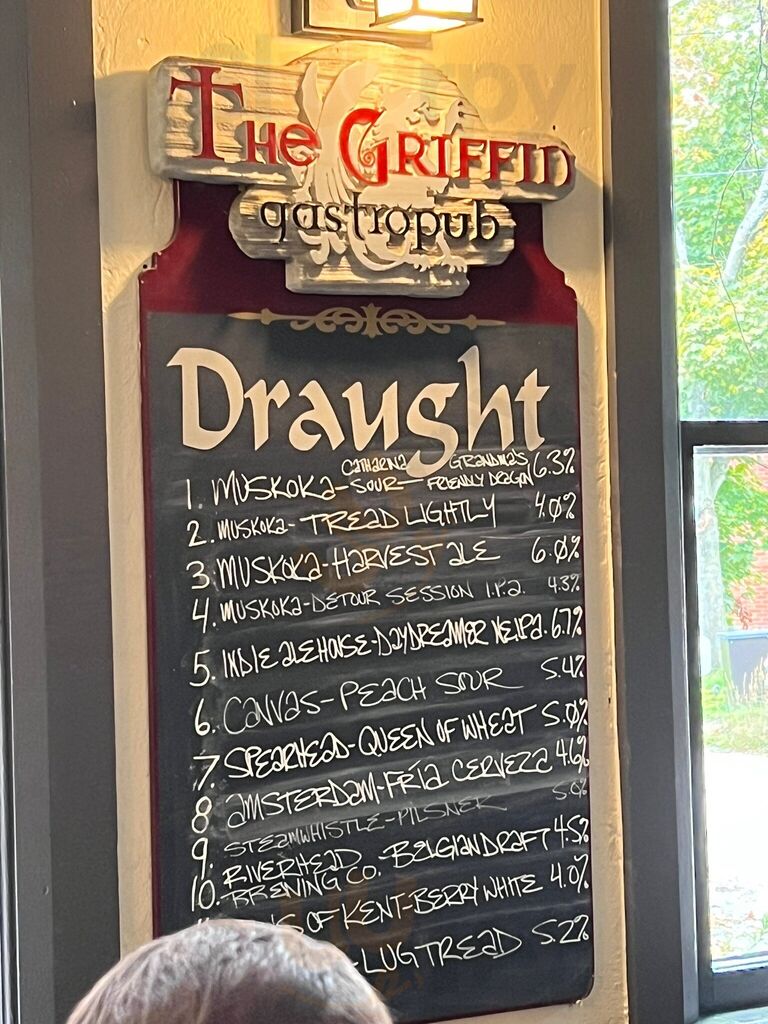 The Griffin
gastropub
Draught
1. Muskoka - Catharina Sour - Grandma's Friendly Dragon 6.3%
2. Muskoka - Tread Lightly 4.0%
3. Muskoka - Harvest Ale 6.0%
4. Muskoka - Detour Session I.P.A. 4.3%
5. Indie Alehouse - Daydreamer NEIPA. 6.7%
6. Canvas - Peach Sour 5.4%
7. Spearhead - Queen of Wheat 5.0%
8. Amsterdam - Fría Cerveza 4.6%
9. Steamwhistle - Pilsner 5.0%
10. Riverhead Brewing Co. - Belgian Draft 4.5%
of Kent - Berry White 4.0%
- Lug Tread 5.2%